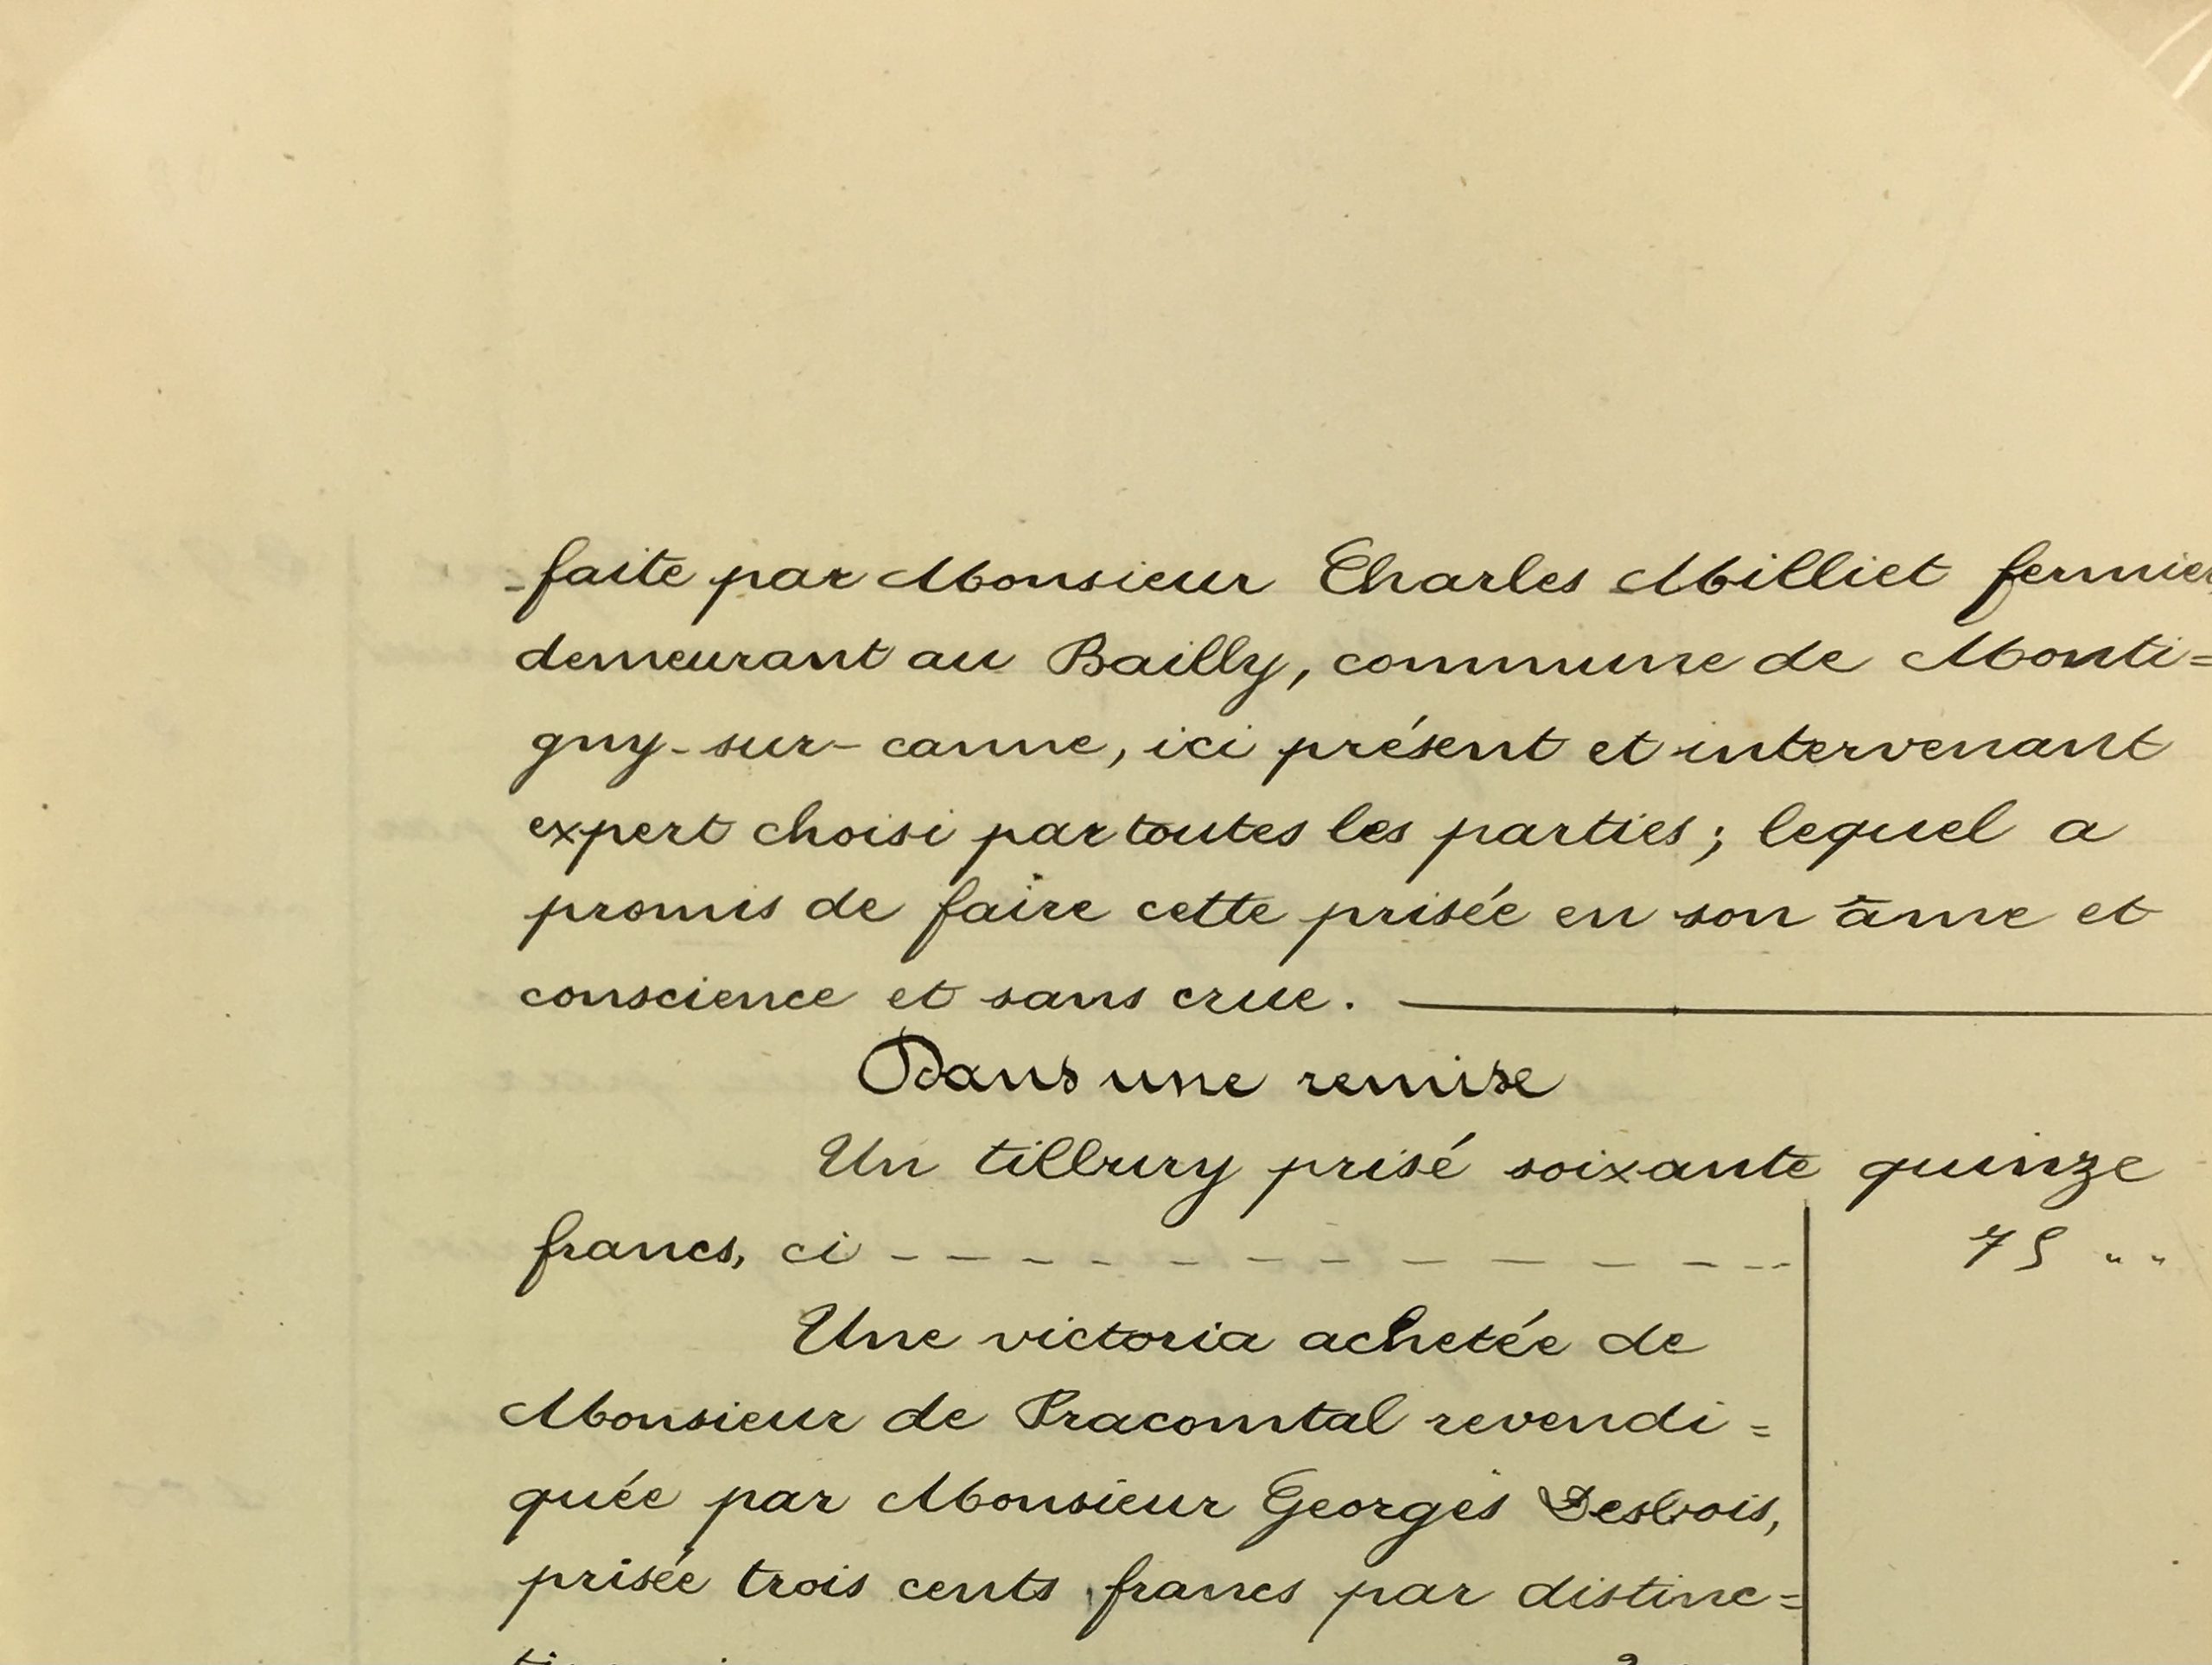 faite par Monsieur Charles Milliet fermier,
demeurant au Bailly, commune de Monti=
gny-sur-canne, ici présent et intervenant
expert choisi par toutes les parties ; lequel a
promis de faire cette prisée en son âme et
conscience et sans crue.
Dans une remise
Un tilbury prisé soixante quinze
francs, ci - - - - - - - - - - - - 75 " "
Une victoria achetée de
Monsieur de Pracomtal revendi=
quée par Monsieur Georges Desbois,
prisée trois cents francs par distinc=